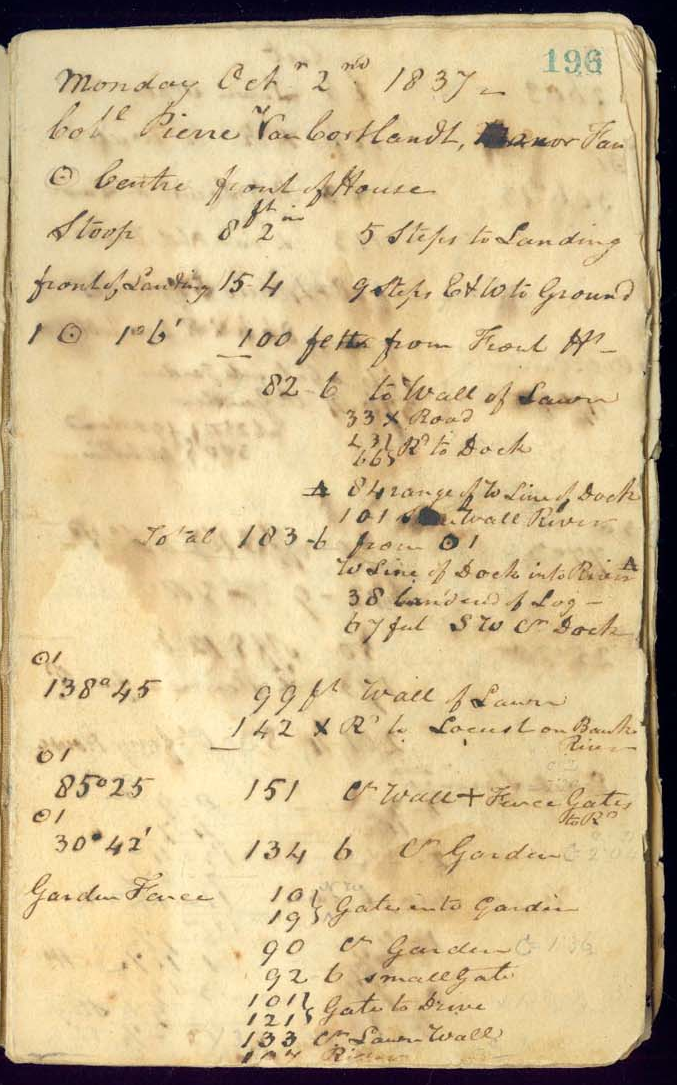 196
Monday Octr 2nd 1837
Cole Pierre Van Cortlandt, Manor Fan
⊙ Centre front of House
Stoop 8 ft 2 in 5 Steps to Landing
front of Landing 15-4 9 Steps E & W to Ground
1 ⊙ 1° 6' 100 feet from Front Hs
82-6 to Wall of Lawn
33 X Road
66} Rd to Dock
84 range of W Line of Dock
101 Wall River
Total 183-6 from ⊙1
W Line of Dock into River
38 end of Log
67 feet S W Cr Dock
⊙1
138° 45 99 ft Wall of Lawn
142 X Rd to Locust on Bank River
⊙1
85° 25 151 Cr Wall + Fence Gates to Rd
⊙1
30° 42' 134 6 Cr Garden
Garden Fence 10}
19} Gate into Garden
90 Cr Garden
92-6 small Gate
101}
121} Gate to Drive
133 Cr Lawn Wall
River